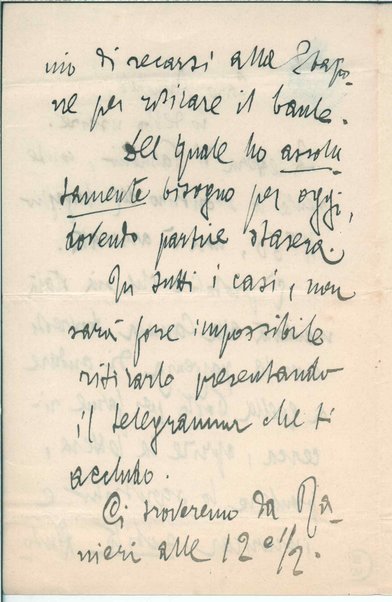 mio di recarsi alla Stazio-
ne per ritirare il baule.
Del quale ho assolu
tamente bisogno per oggi,
dovendo partire stasera.
In tutti i casi, non
sarà forse impossibile
ritirarlo presentando
il telegramma che ti
accludo.
Ci troveremo da Ra-
nieri alle 12 e 1/2.